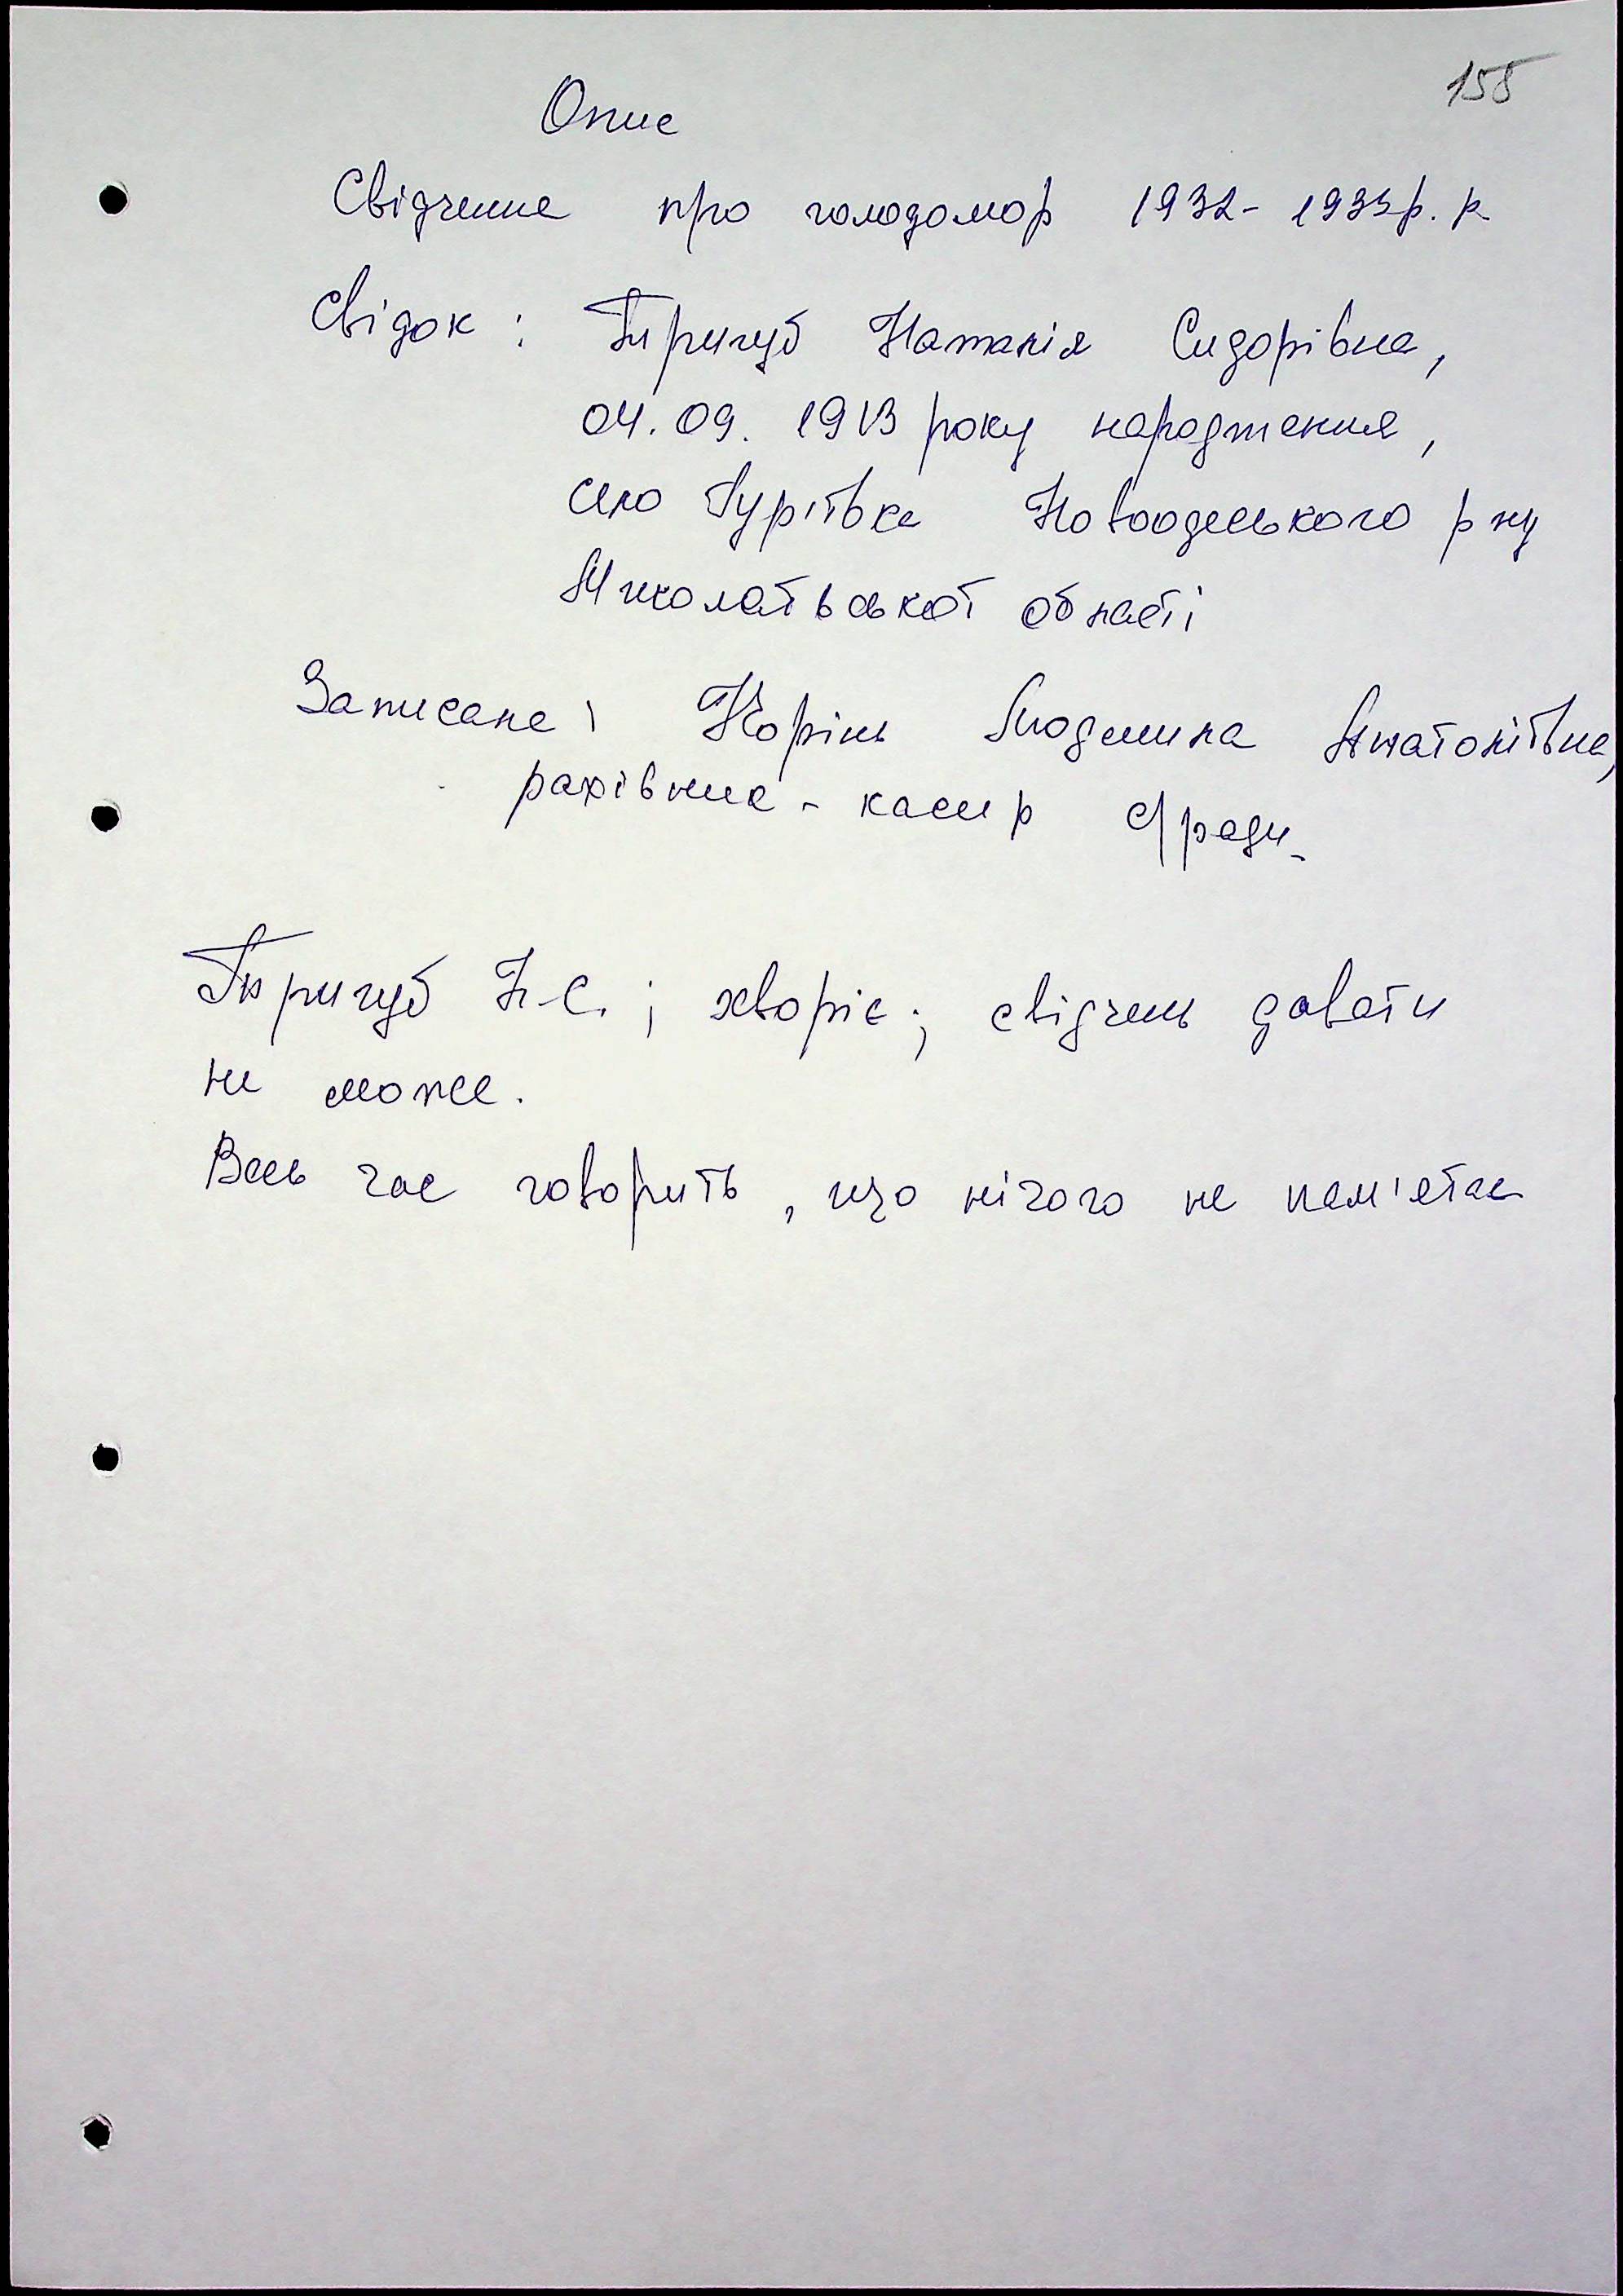 158
Опис
Свідчення про голодомор 1932-1933р.р
Свідок : Пригуб Наталія Сидорівна,
04.09. 1913 року народження,
село Гур'ївка Новоодеського р ну
Миколаївської області
Записала : Корінь Людмила Анатоліївна,
рахівник - касир с/ради.
Пригуб Н.С. ; хворіє ; свідчень давати
не може.
Весь час говорить, що нічого не пам'ятає